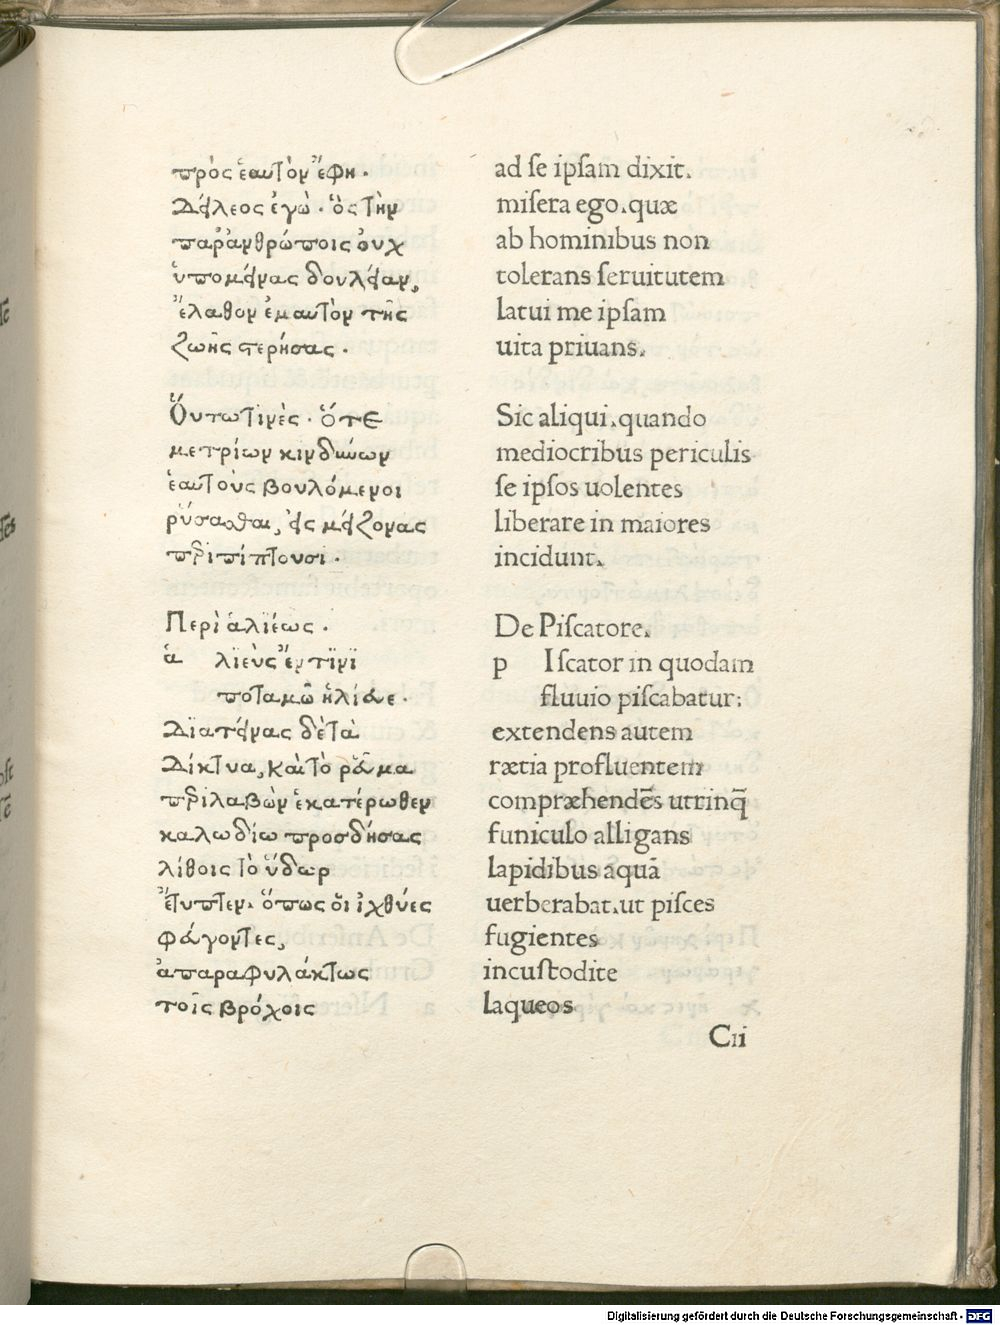 πρὸς ἑαυτὸν ἔφη.
Δείλεος ἐγὼ. ὃς τὴν
παρἀνθρώποις ὀυχ
ὑπομείνας δουλείαν,
ἔλαθον ἐμαυτὸν τῆς
ζωῆς στερήσας.
Ὅυτω τινὲς. ὅτε
μετρίων κινδύνων
ἑαυτοὺς βουλόμενοι
ῥύσασθαι, εἰς μείζονας
περιπίπτουσι.
Περὶ ἁλιέως.
ἁ λϊεὺς ἔν τινϊ
ποταμῶ ἡλίευε.
Διατείνας δὲ τὰ
Δίκτυα, καὶ τὸ ῥεῦμα
περιλαβὼν ἑκατέρωθεν
καλωδίω προσδήσας
λίθοις τὸ ὕδωρ
ἔτυπτεν. ὅπως ὅι ἰχθύες
φεύγοντες,
ἀπαραφυλάκτως
τοῖς βρόχοις
ad se ipsam dixit.
misera ego.quæ
ab hominibus non
tolerans seruitutem
latui me ipsam
uita priuans.
Sic aliqui.quando
mediocribus periculis
se ipsos uolentes
liberare in maiores
incidunt.
De Piscatore.
p Iscator in quodam
fluuio piscabatur:
extendens autem
rætia profluentem
compræhendēs utrinq̄
funiculo alligans
lapidibus aquā
uerberabat.ut pisces
fugientes
incustodite
laqueos
Cii
Digitalisierung gefördert durch die Deutsche Forschungsgemeinschaft - DFG